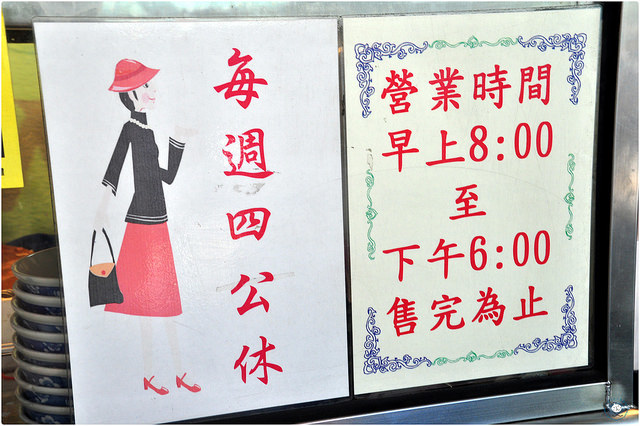 每週四公休
營業時間
早上8:00
至
下午6:00
售完為止